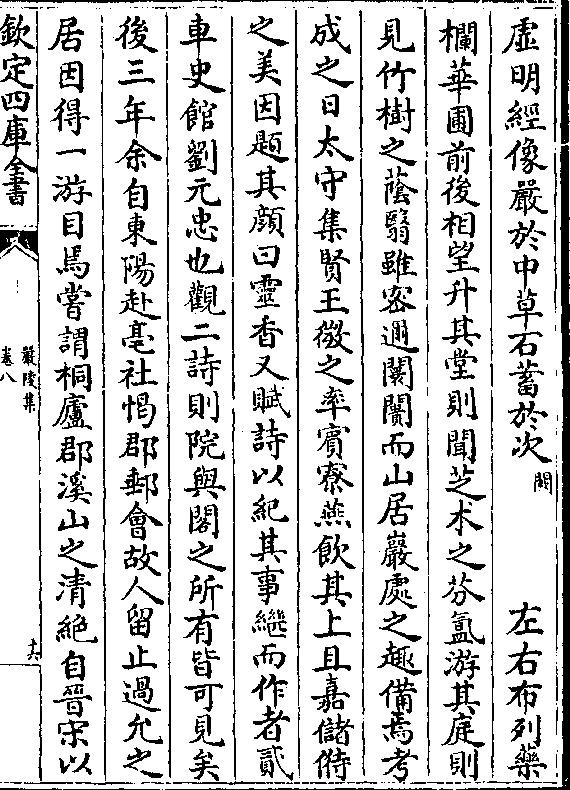 虛明經像嚴於中草石蓄於次闕左右布列藥
欄華圃前後相望升其堂則聞芝术之芬氳游其庭則
見竹樹之蔭翳雖密邇闤闠而山居巖處之趣備焉考
成之日太守集賢王徽之率賓寮燕飲其上且嘉儲偫
之美因題其顔曰靈香又賦詩以紀其事繼而作者貳
車史館劉元忠也觀二詩則院與閣之所有皆可見矣
後三年余自東陽赴亳社愒郡郵會故人留止過允之
居因得一游目焉嘗謂桐廬郡溪山之清絶自晉宋以
欽定四庫全書
嚴陵集
卷八
十六